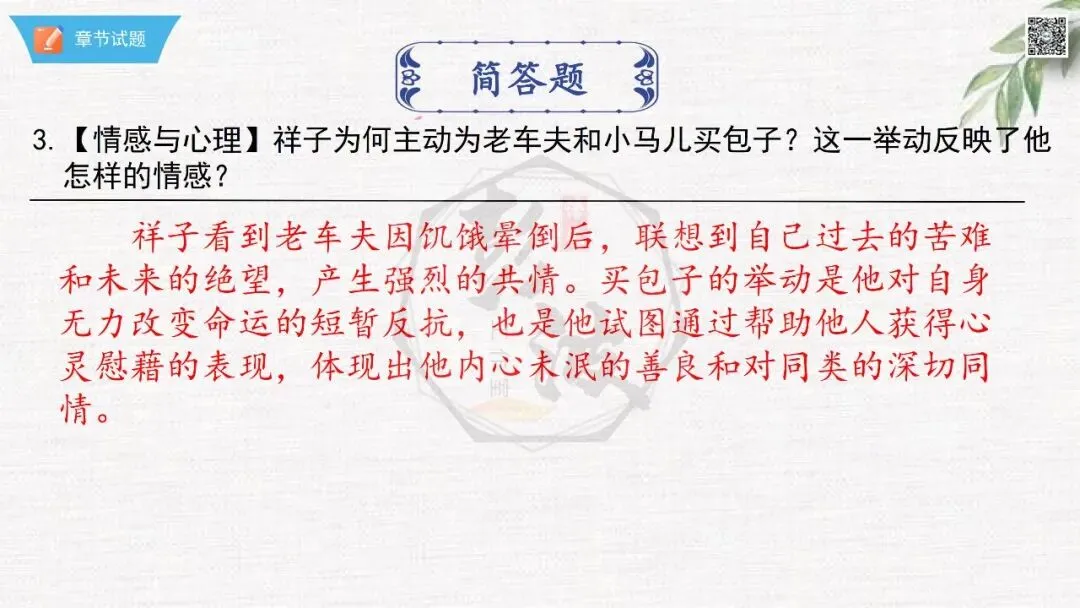 章节试题
简答题
3.【情感与心理】祥子为何主动为老车夫和小马儿买包子？这一举动反映了他
怎样的情感？
祥子看到老车夫因饥饿晕倒后，联想到自己过去的苦难
和未来的绝望，产生强烈的共情。买包子的举动是他对自身
无力改变命运的短暂反抗，也是他试图通过帮助他人获得心
灵慰藉的表现，体现出他内心未泯的善良和对同类的深切同
情。